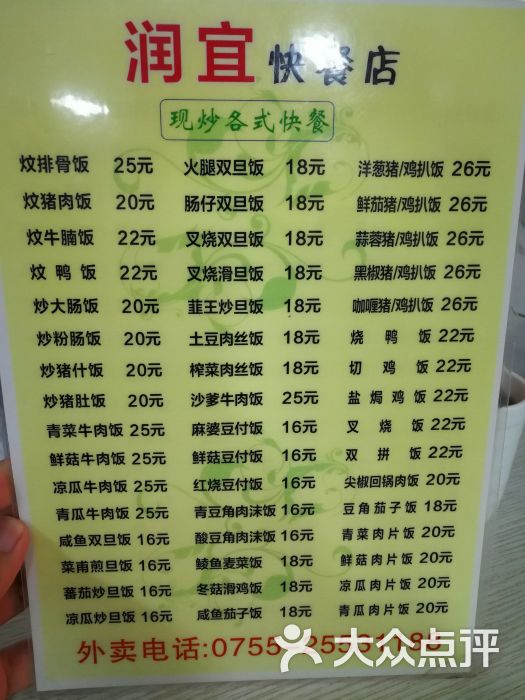 润宜快餐店
现炒各式快餐
炆排骨饭 25元 火腿双旦饭 18元 洋葱猪/鸡扒饭 26元
炆猪肉饭 20元 肠仔双旦饭 18元 鲜茄猪/鸡扒饭 26元
炆牛腩饭 22元 叉烧双旦饭 18元 蒜蓉猪/鸡扒饭 26元
炆鸭饭 22元 叉烧滑旦饭 18元 黑椒猪/鸡扒饭 26元
炒大肠饭 20元 韮王炒旦饭 18元 咖喱猪/鸡扒饭 26元
炒粉肠饭 20元 土豆肉丝饭 18元 烧鸭饭 22元
炒猪什饭 20元 榨菜肉丝饭 18元 切鸡饭 22元
炒猪肚饭 20元 沙爹牛肉饭 25元 盐焗鸡饭 22元
青菜牛肉饭 25元 麻婆豆付饭 16元 叉烧饭 22元
鲜菇牛肉饭 25元 鲜菇豆付饭 16元 双拼饭 22元
凉瓜牛肉饭 25元 红烧豆付饭 16元 尖椒回锅肉饭 20元
青瓜牛肉饭 25元 青豆角肉沫饭 16元 豆角茄子饭 18元
咸鱼双旦饭 16元 酸豆角肉沫饭 16元 青菜肉片饭 20元
菜甫煎旦饭 16元 鲮鱼麦菜饭 18元 鲜菇肉片饭 20元
蕃茄炒旦饭 16元 冬菇滑鸡饭 18元 凉瓜肉片饭 20元
凉瓜炒旦饭 16元 咸鱼茄子饭 18元 青瓜肉片饭 20元
外卖电话:0755
大众点评